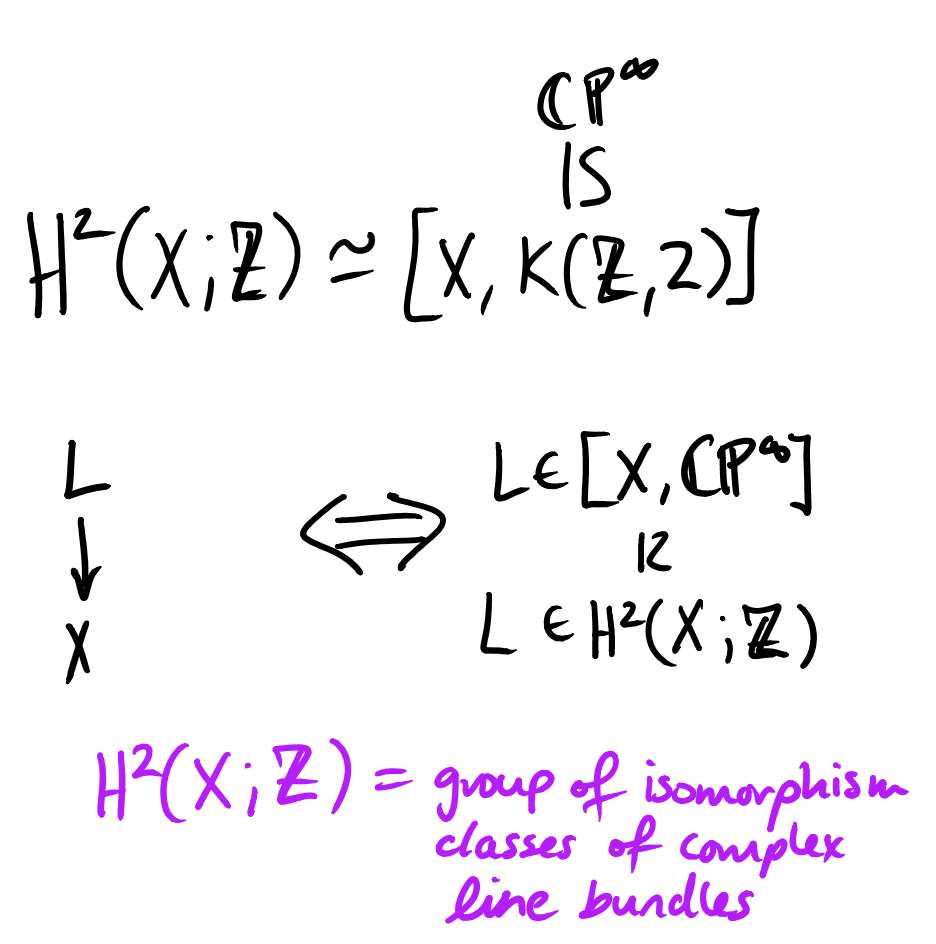 ℂP^∞
IS
H²(X;ℤ) ≃ [X, K(ℤ,2)]
L ⟺ L ∈ [X, ℂP^∞]
↓ IS
X L ∈ H²(X;ℤ)
H²(X;ℤ) = group of isomorphism
classes of complex
line bundles